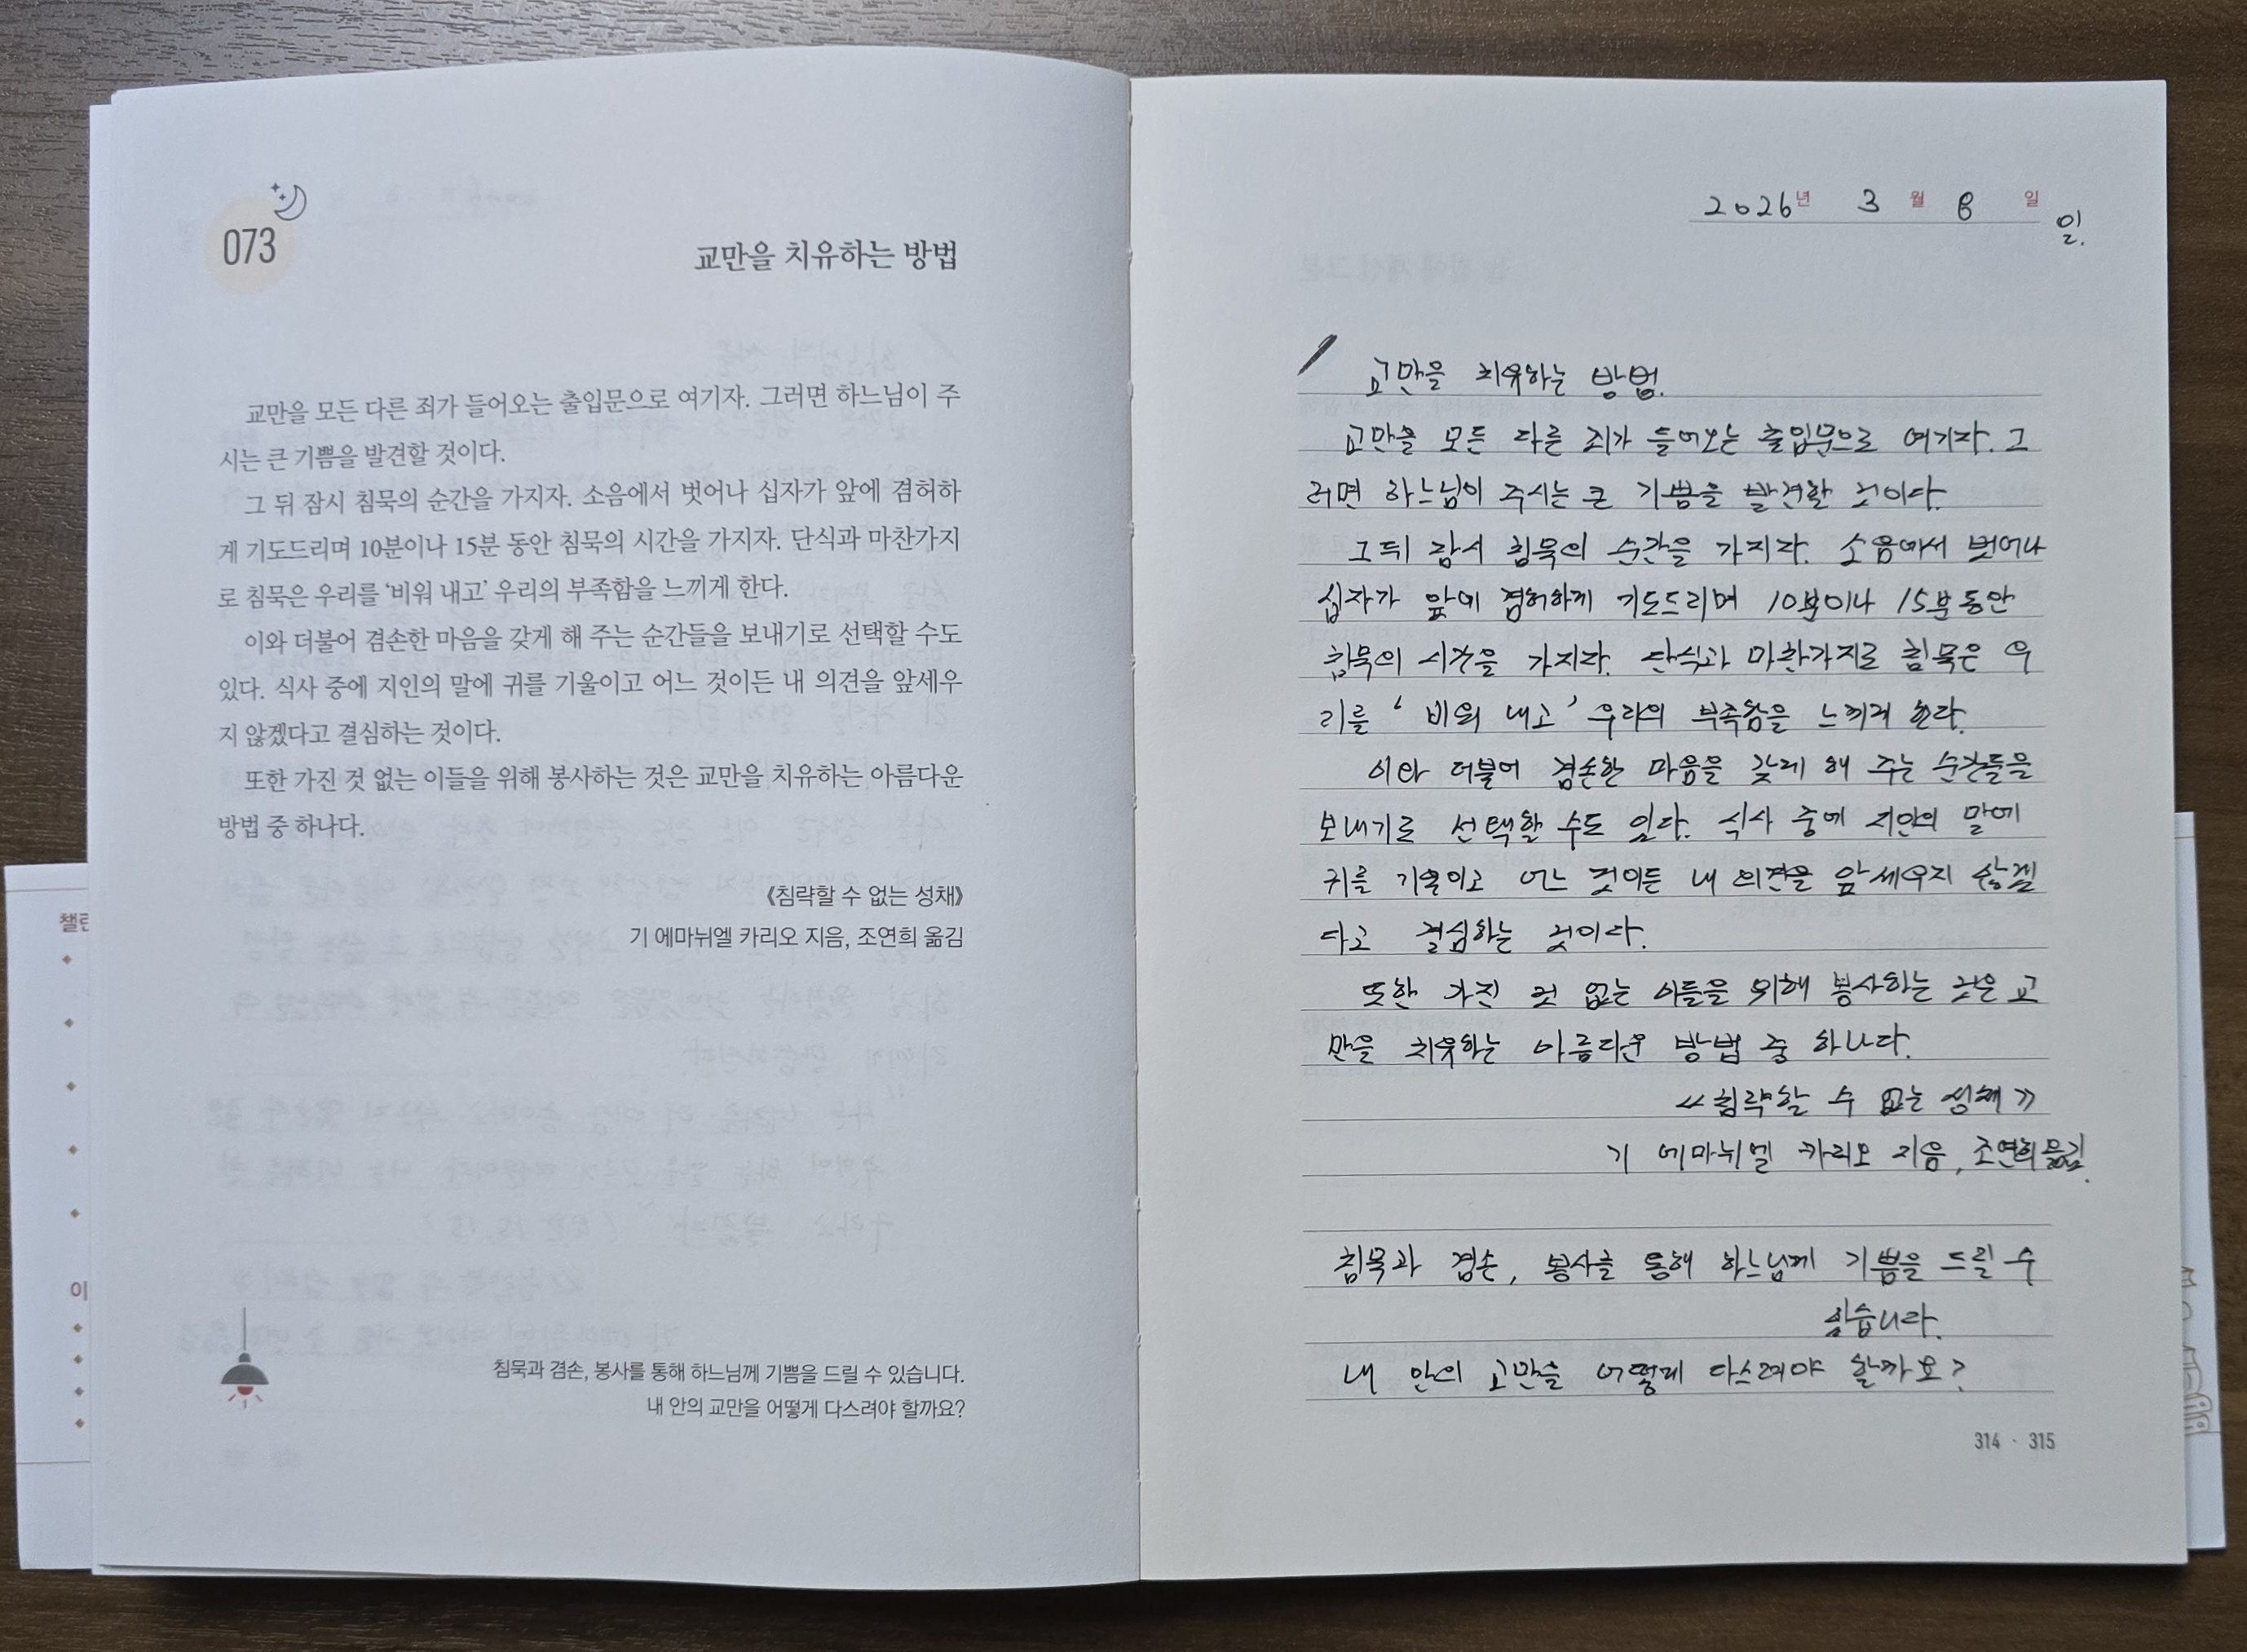 073
교만을 치유하는 방법
교만을 모든 다른 죄가 들어오는 출입문으로 여기자. 그러면 하느님이 주
시는 큰 기쁨을 발견할 것이다.
그 뒤 잠시 침묵의 순간을 가지자. 소음에서 벗어나 십자가 앞에 겸허하
게 기도드리며 10분이나 15분 동안 침묵의 시간을 가지자. 단식과 마찬가지
로 침묵은 우리를 ‘비워 내고’ 우리의 부족함을 느끼게 한다.
이와 더불어 겸손한 마음을 갖게 해 주는 순간들을 보내기로 선택할 수도
있다. 식사 중에 지인의 말에 귀를 기울이고 어느 것이든 내 의견을 앞세우
지 않겠다고 결심하는 것이다.
또한 가진 것 없는 이들을 위해 봉사하는 것은 교만을 치유하는 아름다운
방법 중 하나다.
《침략할 수 없는 성채》
기 에마뉘엘 카리오 지음, 조연희 옮김
침묵과 겸손, 봉사를 통해 하느님께 기쁨을 드릴 수 있습니다.
내 안의 교만을 어떻게 다스려야 할까요?
2026년 3월 8일
일.
교만을 치유하는 방법.
교만을 모든 다른 죄가 들어오는 출입문으로 여기자. 그
러면 하느님이 주시는 큰 기쁨을 발견할 것이다.
그 뒤 잠시 침묵의 순간을 가지자. 소음에서 벗어나
십자가 앞에 겸허하게 기도드리며 10분이나 15분 동안
침묵의 시간을 가지자. 단식과 마찬가지로 침묵은 우
리를 ‘비워 내고’ 우리의 부족함을 느끼게 한다.
이와 더불어 겸손한 마음을 갖게 해 주는 순간들을
보내기로 선택할 수도 있다. 식사 중에 지인의 말에
귀를 기울이고 어느 것이든 내 의견을 앞세우지 않겠
다고 결심하는 것이다.
또한 가진 것 없는 이들을 위해 봉사하는 것은 교
만을 치유하는 아름다운 방법 중 하나다.
《침략할 수 없는 성채》
기 에마뉘엘 카리오 지음, 조연희 옮김.
침묵과 겸손, 봉사를 통해 하느님께 기쁨을 드릴 수
있습니다.
내 안의 교만을 어떻게 다스려야 할까요?
314 · 315